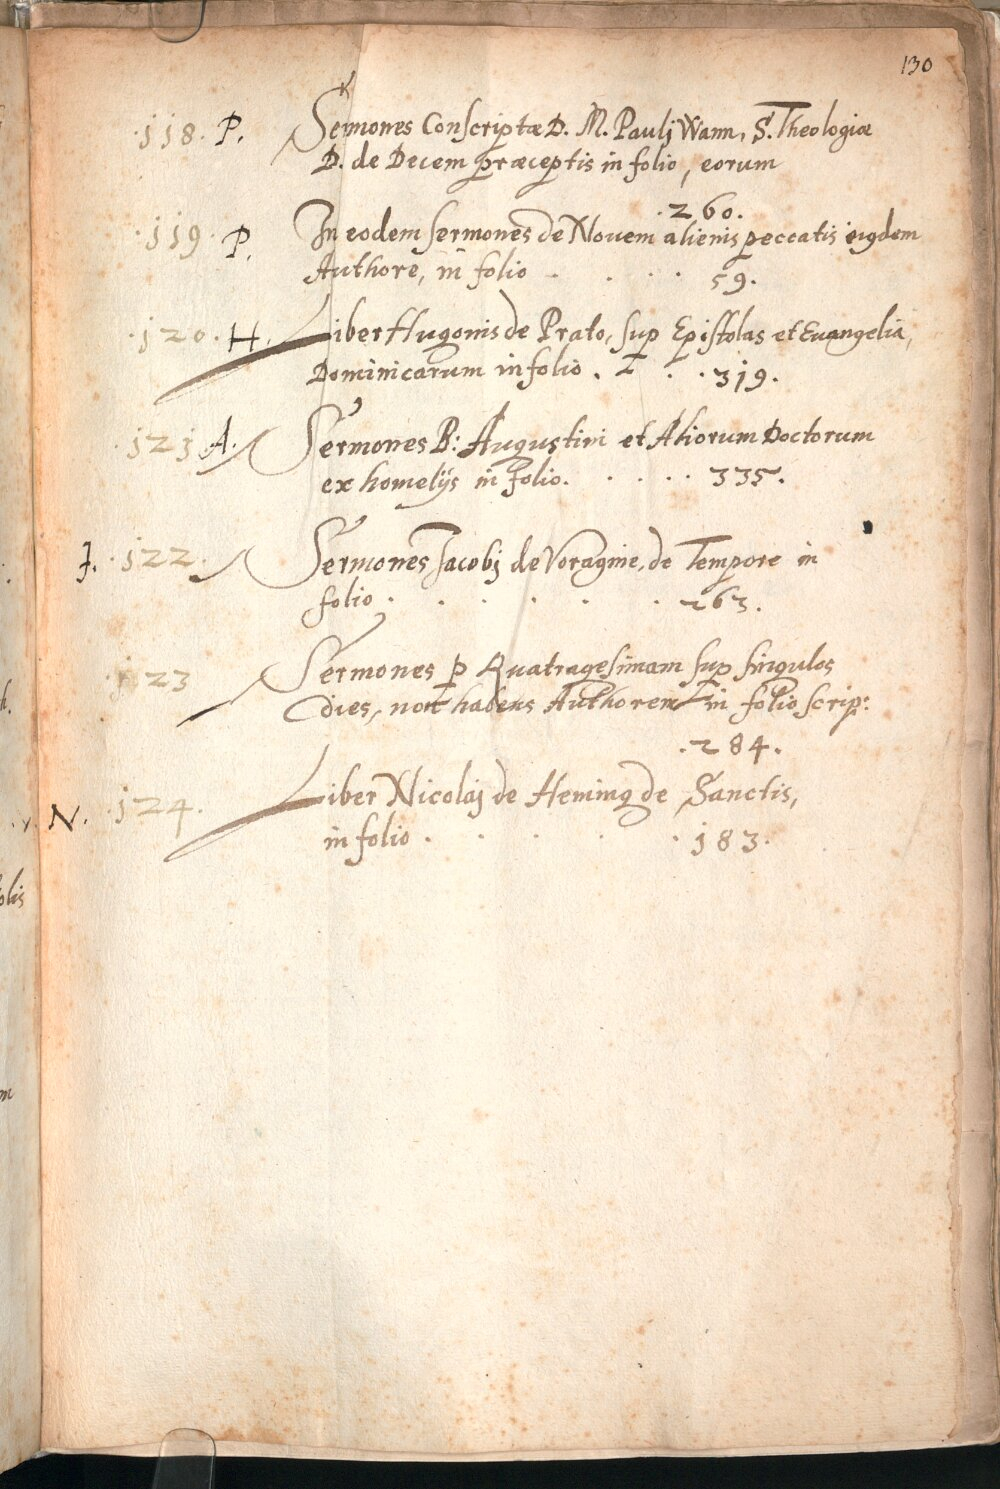 130
·118· P. Sermones Conscriptæ D. M. Paulj Wann, S. Theologiæ
D. de Decem præceptis in folio, eorum
·260.
·119· P. In eodem sermones de Novem alienis peccatis eiqdem
Authore, in folio · · · · 59.
·120· H. Liber Hugonis de Prato, sup Epistolas et Evangelia,
Dominicarum in folio . · · · 319.
·121 A. Sermones B: Augustini et Aliorum Doctorum
ex homelijs in folio. · · · · 335.
J. ·122· Sermones Jacobj de Voragine, de Tempore in
folio · · · · · · 263.
123 Sermones p Quatragesimam sup singulos
dies, non habens Authorem in folio scrip:
·284.
N. ·124· Liber Nicolaj de Heminq de Sanctis,
in folio · · · · · 183·